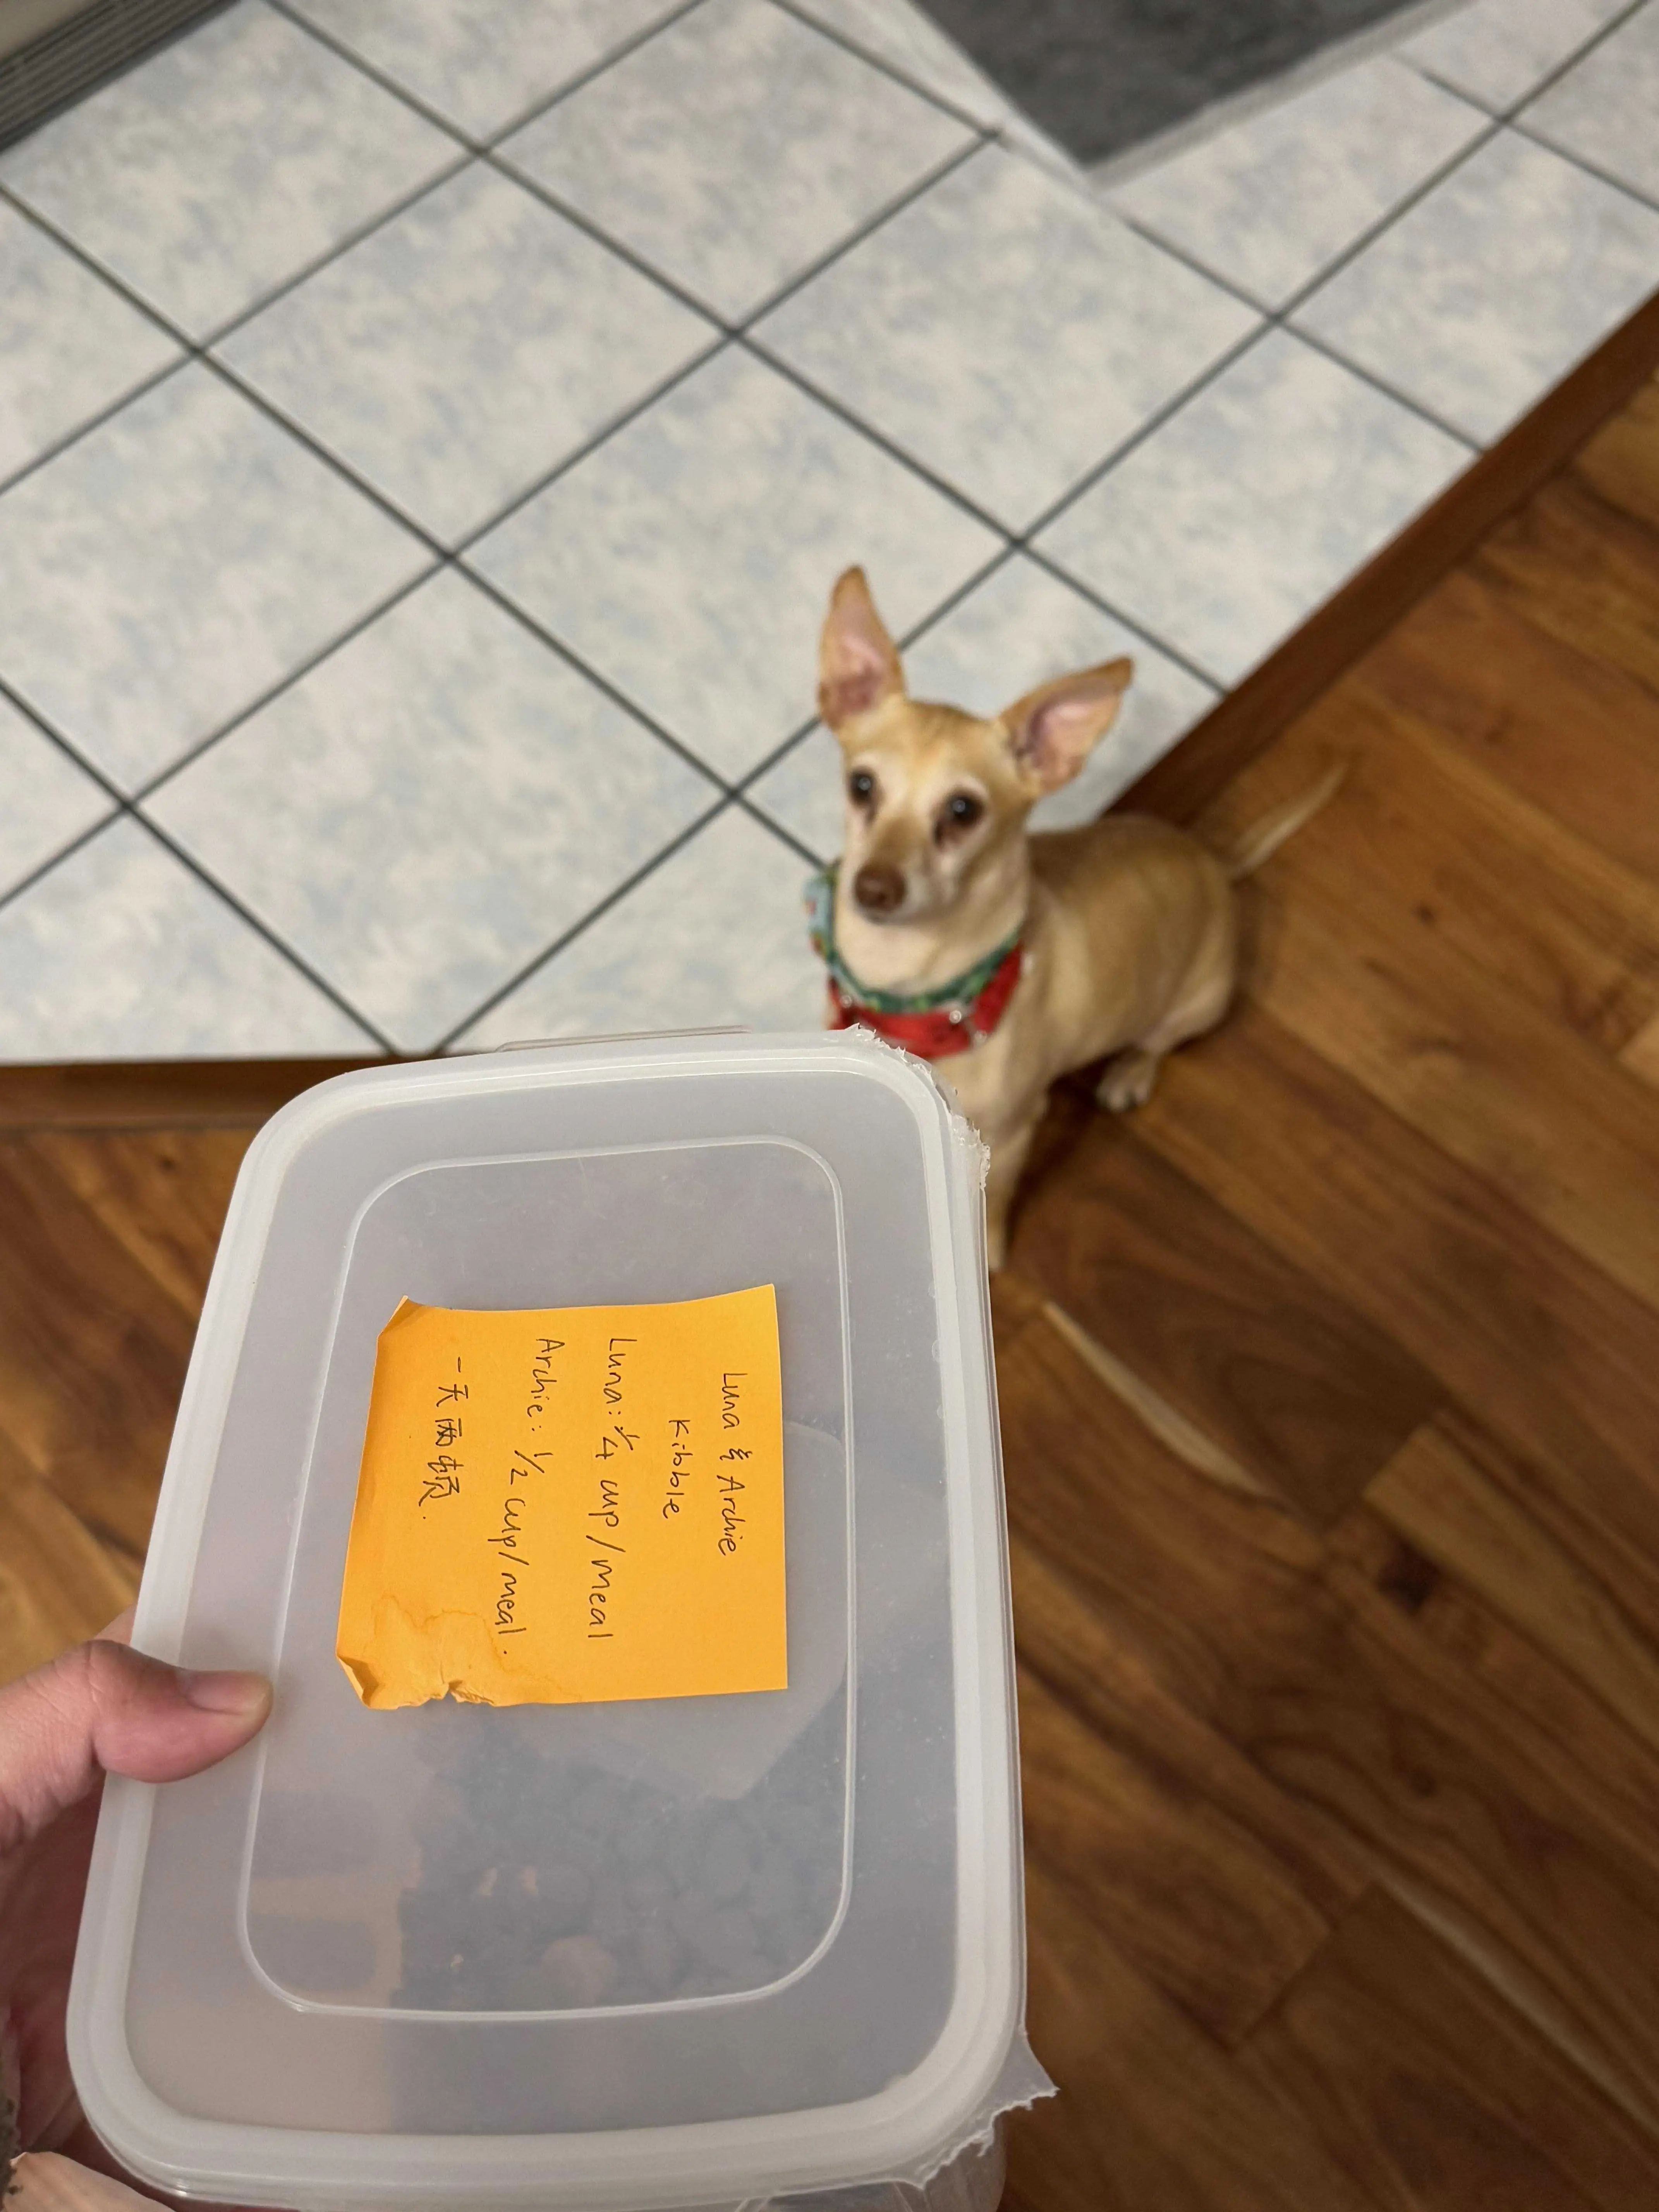 Luna & Archie
Kibble
Luna: 1/4 cup/meal
Archie: 1/2 cup/meal.
一天两顿.